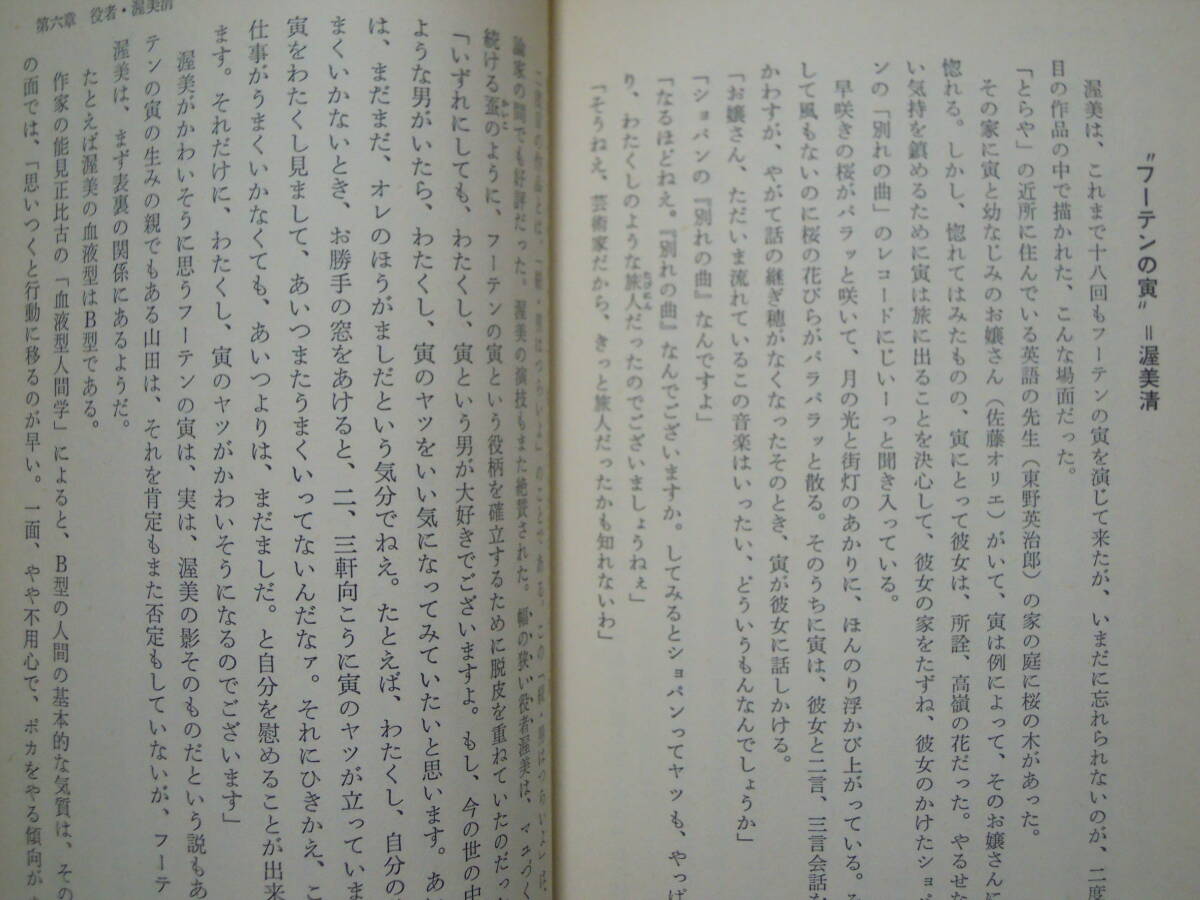 〝フーテンの寅〟＝渥美清
渥美は、これまで十八回もフーテンの寅を演じて来たが、いまだに忘れられないのが、二度
目の作品の中で描かれた、こんな場面だった。
「とらや」の近所に住んでいる英語の先生（東野英治郎）の家の庭に桜の木があった。
その家に寅と幼なじみのお嬢さん（佐藤オリエ）がいて、寅は例によって、そのお嬢さんに
惚れる。しかし、惚れてはみたものの、寅にとって彼女は、所詮、高嶺の花だった。やるせな
い気持を鎮めるために寅は旅に出ることを決心して、彼女の家をたずね、彼女のかけたショパ
ンの「別れの曲」のレコードにじいーっと聞き入っている。
早咲きの桜がパラッと咲いて、月の光と街灯のあかりに、ほんのり浮かび上がっている。
して風もないのに桜の花びらがパラパラッと散る。そのうちに寅は、彼女と二言、三言会話な
かわすが、やがて話の継ぎ穂がなくなったそのとき、寅が彼女に話しかける。
「お嬢さん、ただいま流れているこの音楽はいったい、どういうもんなんでしょうか」
「ショパンの『別れの曲』なんですよ」
「なるほどねえ。『別れの曲』なんでございますか。してみるとショパンってヤツも、やっぱ
り、わたくしのような旅人だったのでございましょうねぇ」
たびにん
「そうねえ、芸術家だから、きっと旅人だったかも知れないわ」
第六章　役者・渥美清
論家の間でも好評だった。渥美の演技もまた絶賛された。幅の狭い役者渥美は、マユづく
続ける蚕のように、フーテンの寅という役柄を確立するために脱皮を重ねていたのだっ
かいこ
「いずれにしても、わたくし、寅という男が大好きでございますよ。もし、今の世の中
ような男がいたら、わたくし、寅のヤツをいい気になってみていたいと思います。あ
は、まだまだ、オレのほうがましだという気分でねえ。たとえば、わたくし、自分の
まくいかないとき、お勝手の窓をあけると、二、三軒向こうに寅のヤツが立っていま
寅をわたくし見まして、あいつまたうまくいってないんだなァ。それにひきかえ、こ
仕事がうまくいかなくても、あいつよりは、まだましだ。と自分を慰めることが出来
ます。それだけに、わたくし、寅のヤツがかわいそうになるのでございます」
渥美がかわいそうに思うフーテンの寅は、実は、渥美の影そのものだという説もあ
テンの寅の生みの親でもある山田は、それを肯定もまた否定もしていないが、フーテ
渥美は、まず表裏の関係にあるようだ。
たとえば渥美の血液型はB型である。
作家の能見正比古の「血液型人間学」によると、B型の人間の基本的な気質は、その
の面では、「思いつくと行動に移るのが早い。一面、やや不用心で、ポカをやる傾向が